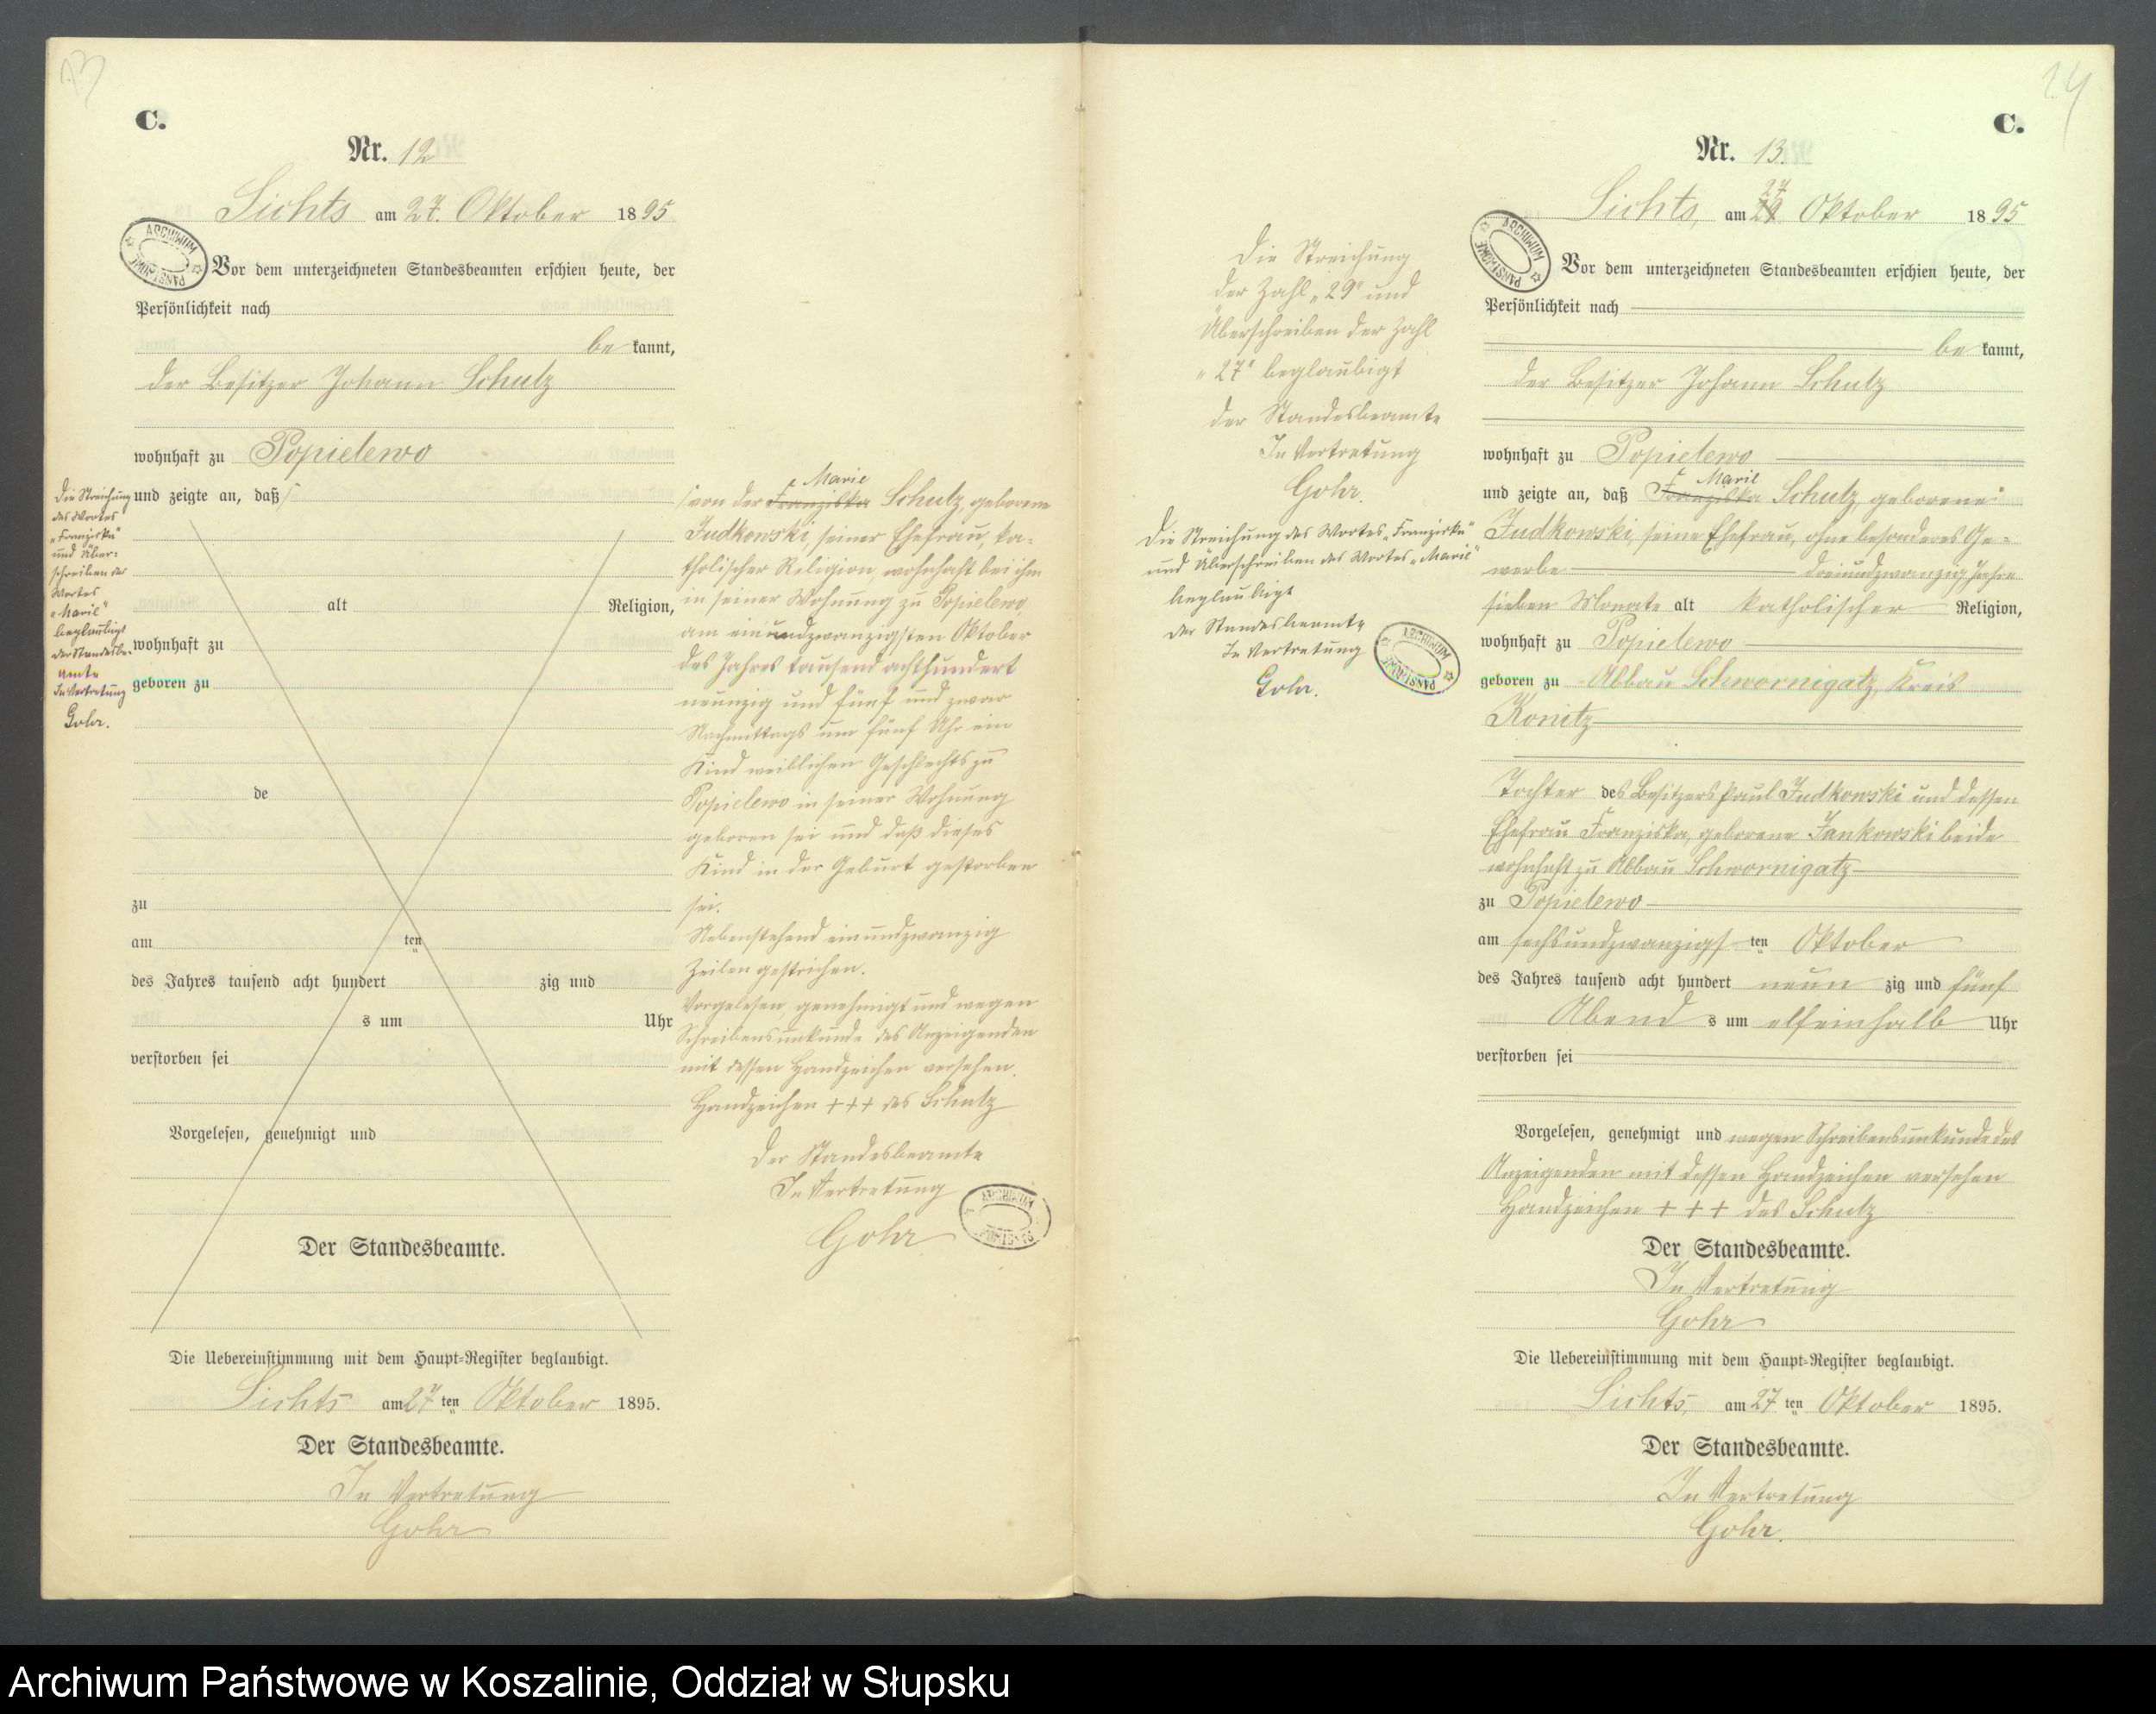 13
C.
Nr. 12
Lichts am 27. Oktober 1895
Vor dem unterzeichneten Standesbeamten erschien heute, der
Persönlichkeit nach
be kannt,
der Besitzer Johann Schulz
wohnhaft zu Popielewo
und zeigte an, daß
alt Religion,
wohnhaft zu
geboren zu
de
zu
am ten
des Jahres tausend acht hundert zig und
s um Uhr
verstorben sei
Vorgelesen, genehmigt und
Der Standesbeamte.
Die Uebereinstimmung mit dem Haupt-Register beglaubigt.
Lichts am 27 ten Oktober 1895.
Der Standesbeamte.
In Vertretung
Gohr
Die Streichung
des Wortes
„Franziska"
und Über-
schreiben des
Wortes
„Marie"
beglaubigt
der Standesbe-
amte
In Vertretung
Gohr.
Marie
von der Franziska Schulz, geborene
Judkowski, seiner Ehefrau, ka-
tholischer Religion, wohnhaft bei ihm
in seiner Wohnung zu Popielewo
am einundzwanzigsten Oktober
des Jahres tausend achthundert
neunzig und fünf und zwar
Nachmittags um fünf Uhr ein
Kind weiblichen Geschlechts zu
Popielewo in seiner Wohnung
geboren sei und daß dieses
Kind in der Geburt gestorben
sei.
Nebenstehend einundzwanzig
Zeilen gestrichen.
Vorgelesen, genehmigt und wegen
Schreibensunkunde des Anzeigenden
mit dessen Handzeichen versehen.
Handzeichen +++ des Schulz
Der Standesbeamte
In Vertretung
Gohr
ARCHIWUM PAŃSTWOWE
24
C.
Nr. 13.
27
Lichts, am 29 Oktober 1895
Vor dem unterzeichneten Standesbeamten erschien heute, der
Persönlichkeit nach
be kannt,
der Besitzer Johann Schulz
wohnhaft zu Popielewo
Marie
und zeigte an, daß Franziska Schulz, geborene
Judkowski, seine Ehefrau, ohne besonderes Ge-
werbe dreiundzwanzig Jahre
sieben Monate alt katholischer Religion,
wohnhaft zu Popielewo
geboren zu Abbau Schwornigatz, Kreis
Konitz
Tochter des Besitzers Paul Judkowski und dessen
Ehefrau Franziska, geborene Jankowski beide
wohnhaft zu Abbau Schwornigatz
zu Popielewo
am sechsundzwanzigs ten Oktober
des Jahres tausend acht hundert neun zig und fünf
Abend s um elfeinhalb Uhr
verstorben sei
Vorgelesen, genehmigt und wegen Schreibensunkunde des
Anzeigenden mit dessen Handzeichen versehen
Handzeichen + + + des Schulz
Der Standesbeamte.
In Vertretung
Gohr
Die Uebereinstimmung mit dem Haupt-Register beglaubigt.
Lichts, am 27 ten Oktober 1895.
Der Standesbeamte.
In Vertretung
Gohr.
Die Streichung
der Zahl „29" und
Überschreiben der Zahl
„27" beglaubigt
der Standesbeamte
In Vertretung
Gohr.
Die Streichung des Wortes „Franziska"
und Überschreiben des Wortes „Marie"
beglaubigt
der Standesbeamte
In Vertretung
Gohr.
ARCHIWUM PAŃSTWOWE
Archiwum Państwowe w Koszalinie, Oddział w Słupsku